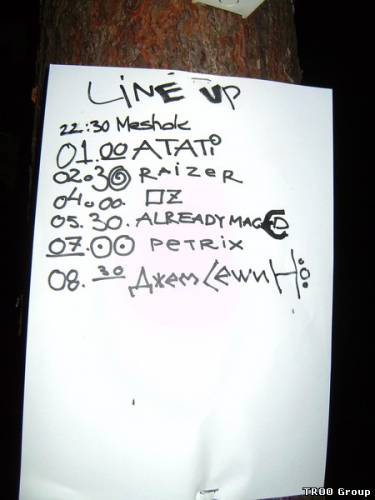 LINE UP
22:30 Meshok
01.00 ATATi
02.30 RAIZER
04.00. OZ
05.30. ALREADYMAGED
07.00 PETRIX
08.30 Джем Сешин
TROO Group